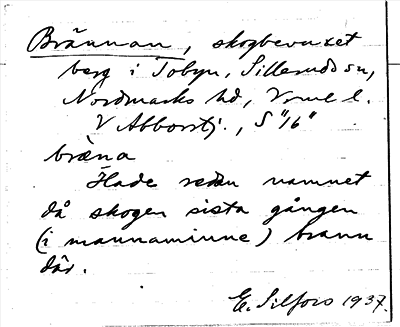 Brännan, skogbevuxet
berg i Tobyn, Sillerudssn,
Nordmarks hd, Vrml l.
V Abborrtj., S "/6"
bräna
Hade redan namnet
då skogen sista gången
(i mannaminne) brann
där.
E. Silfors 1937.